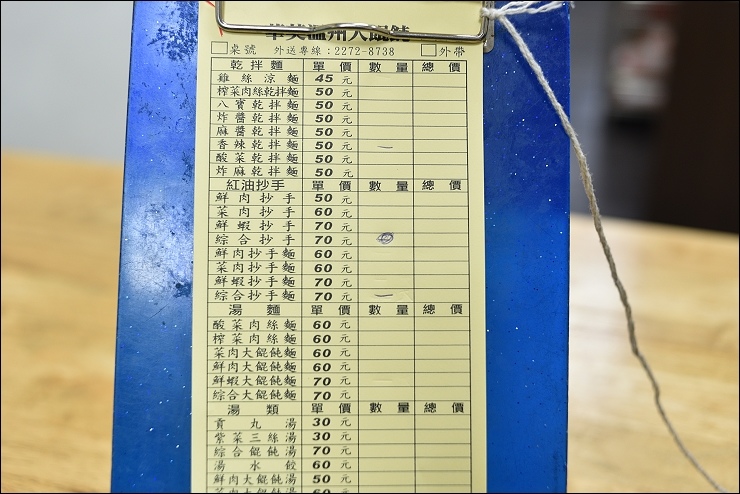 華英溫州大餛飩
□桌號 外送專線：2272-8738 □外帶
乾拌麵 單價 數量 總價
雞絲涼麵 45元
榨菜肉絲乾拌麵 50元
八寶乾拌麵 50元
炸醬乾拌麵 50元
麻醬乾拌麵 50元
香辣乾拌麵 50元 一
酸菜乾拌麵 50元
炸麻乾拌麵 50元
紅油抄手 單價 數量 總價
鮮肉抄手 50元
菜肉抄手 60元
鮮蝦抄手 70元
綜合抄手 70元
鮮肉抄手麵 60元
菜肉抄手麵 60元
鮮蝦抄手麵 70元
綜合抄手麵 70元 一
湯麵 單價 數量 總價
酸菜肉絲麵 60元
榨菜肉絲麵 60元
菜肉大餛飩麵 60元
鮮肉大餛飩麵 60元
鮮蝦大餛飩麵 70元
綜合大餛飩麵 70元
湯類 單價 數量 總價
貢丸湯 30元
紫菜三絲湯 30元
綜合餛飩湯 70元
湯水餃 60元
鮮肉大餛飩湯 50元
菜肉大餛飩湯 60元